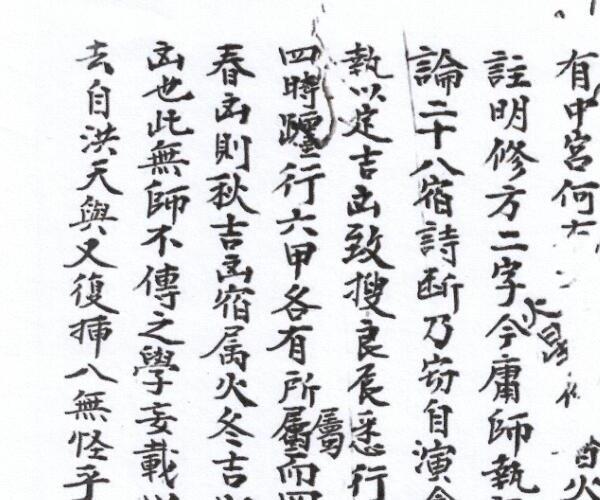 有中宮何
註明修方二字今庸師執
火星
論二十八宿詩断乃窃自演
執以定吉凶致搜良辰悉行
四時躔行六甲各有所屬而四
屬
春凶則秋吉凶宿属火冬吉
凶也此無師不傳之學妄載
去自洪天與又復揷八無怪乎